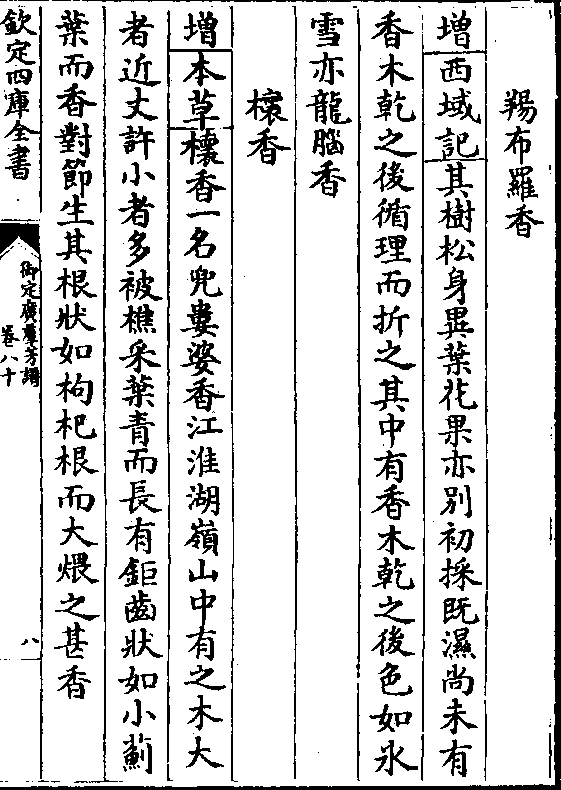 羯布羅香
增西域記其樹松身異葉花果亦别初採既濕尚未有
香木乾之後循理而折之其中有香木乾之後色如氷
雪亦龍腦香
櫰香
增本草櫰香一名兜婁婆香江淮湖嶺山中有之木大
者近丈許小者多被樵采葉青而長有鉅齒狀如小薊
葉而香對節生其根狀如枸杞根而大煨之甚香
欽定四庫全書
御定廣羣芳譜
卷八十
八